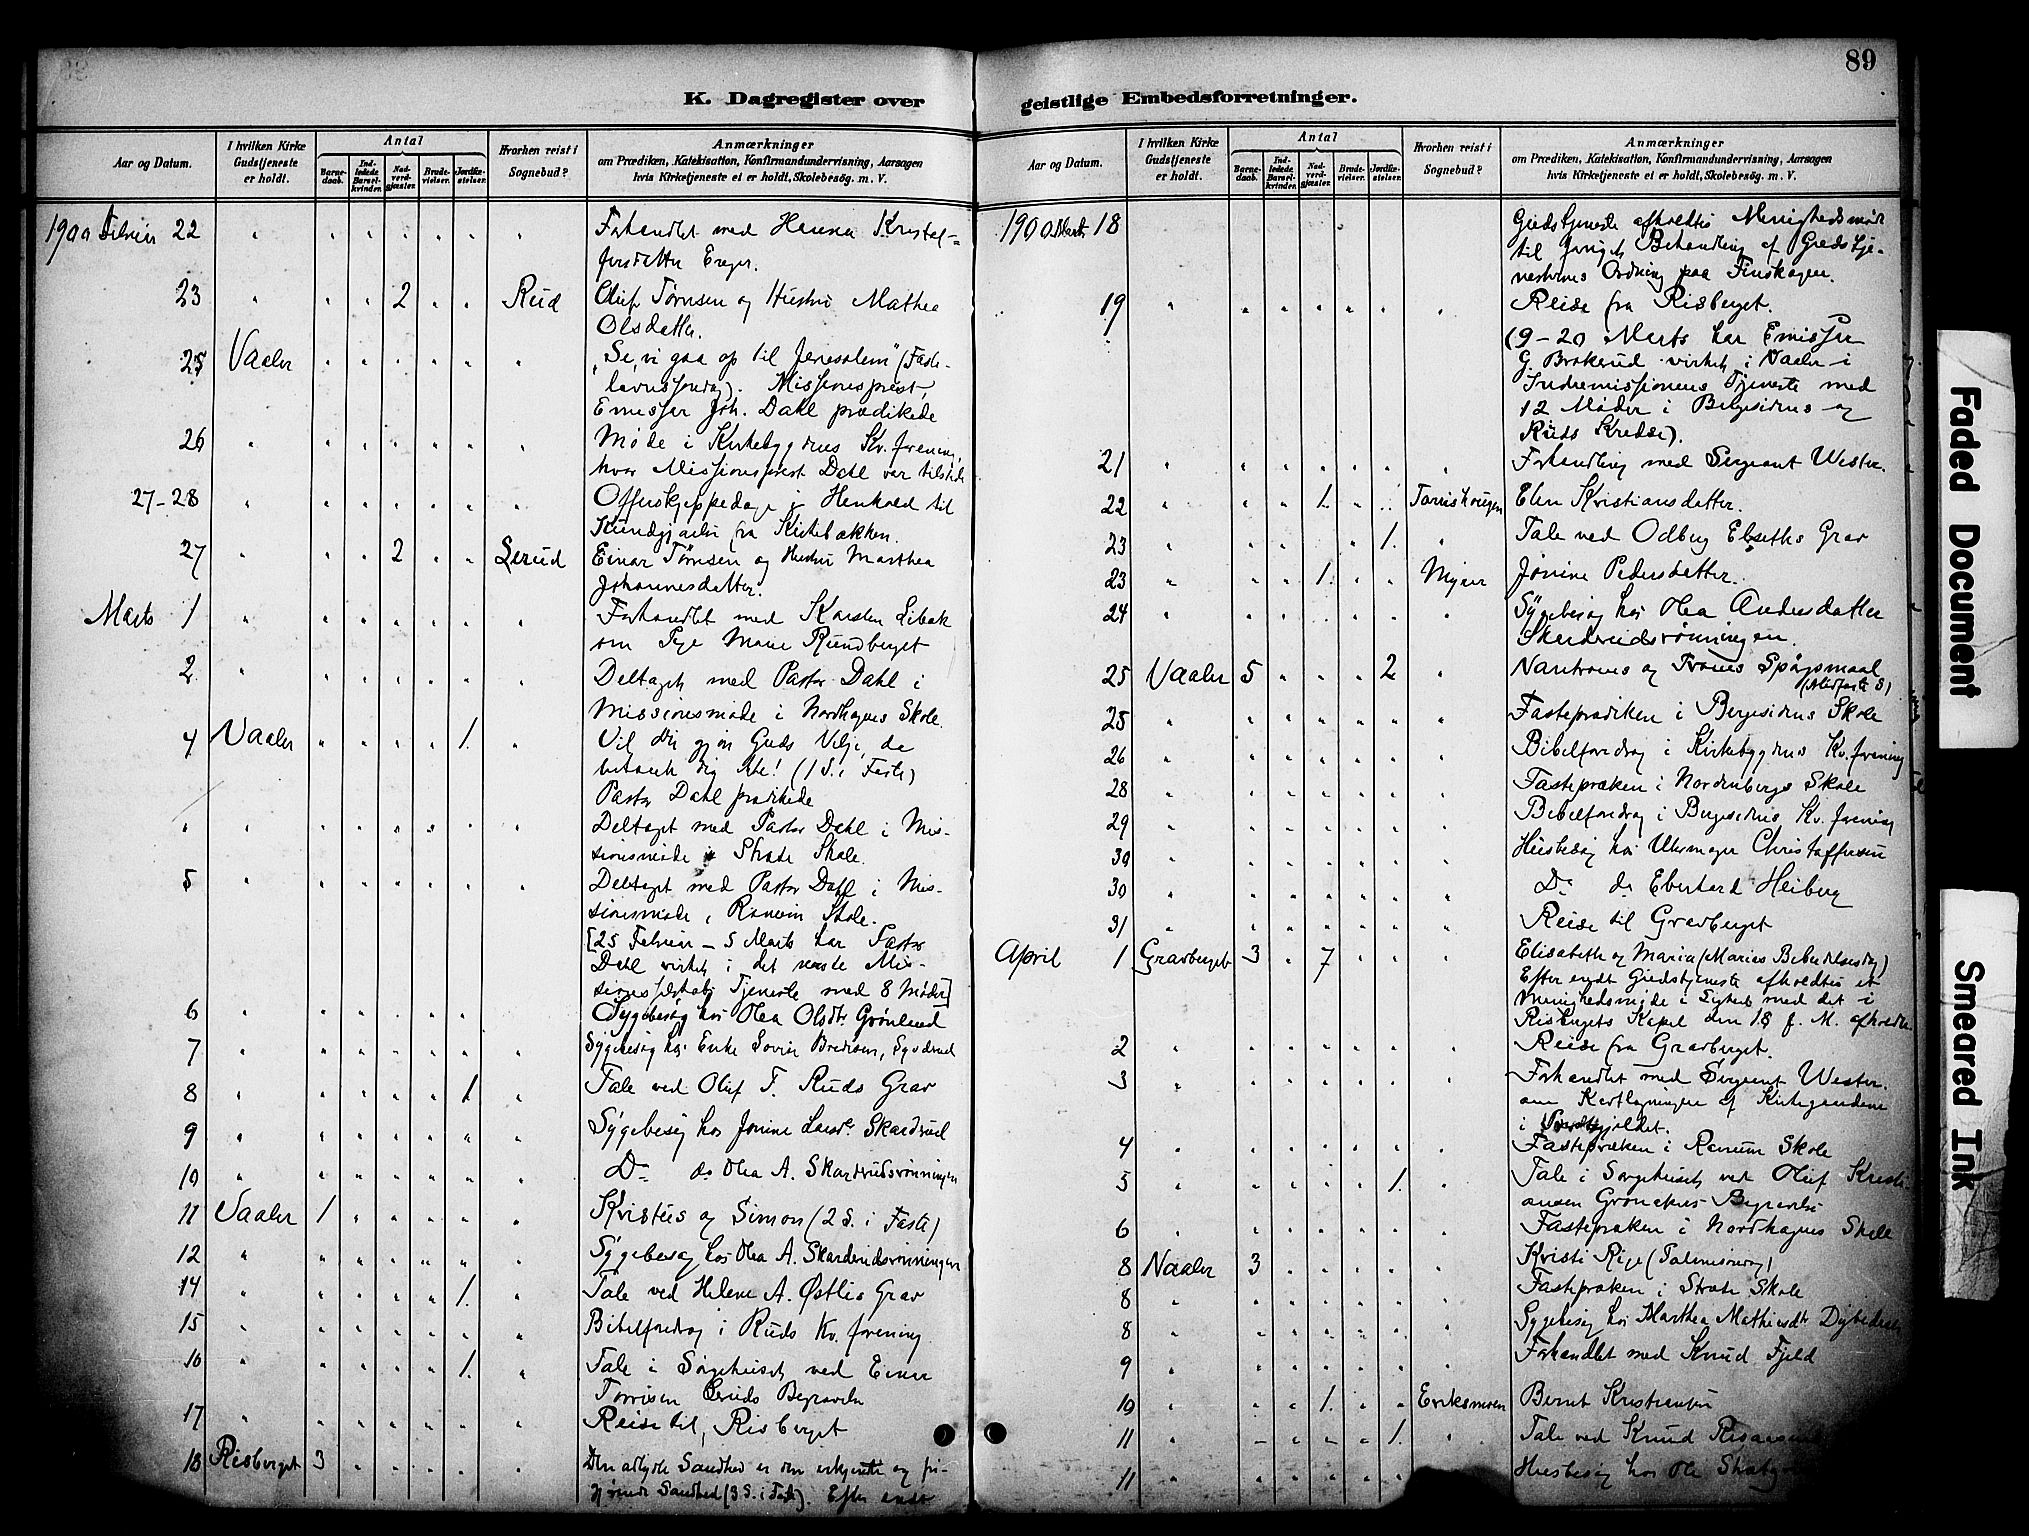 89
K. Dagregister over
geistlige Embedsforretninger.
Aar og Datum.
I hvilken Kirke Gudstjeneste er holdt.
Antal
Barnedaab.
Indledede Barselkvinder.
Nadverdgjæster.
Brudevielser.
Jordfæstelser.
Hvorhen reist i Sognebud?
Anmærkninger
om Prædiken, Katekisation, Konfirmandundervisning, Aarsagen
hvis Kirketjeneste ei er holdt, Skolebesøg. m. V.
1900 Februar 22 Forhandlet med Hanna Kristof=
fersdatter Enger.
23 2 Rud Oluf Tørrisen og Hustru Mathea
Olsdatter.
25 Vaaler "Se, vi gaa op til Jerusalem" (Faste-
lavnssøndag). Missionsprest,
Emissær Joh. Dahl prædikede
26 Møde i Kirkebygdens Kv. forening,
hvor Missionsprest Dahl var tilstede
27-28
Kirkebakken.
27 2 Lerud Einar Tørrisen og Hustru Marthea
Johannesdatter.
Marts 1 Forhandlet med Karsten Libak
om Pige Marie Rundberget
2 Deltaget med Pastor Dahl i
Missionsmøde i Nordhagens Skole.
4 Vaaler 1. Vil Du gjøre Guds Vilje, da
betænk dig ikke! (1 S. i Faste)
Pastor Dahl prædikede
Deltaget med Pastor Dahl i Mis-
sionsmøde i Stræte Skole.
5 Deltaget med Pastor Dahl i Mis-
sionsmøde i Ranum Skole.
[25 Februar - 5 Marts har Pastor
Dahl virket i det norske Mis-
sionsselskabs Tjeneste med 8 Møder]
6 Sygebesøg hos Olea Olsdtr. Grønlund
7 Sygebesøg hos Enke
8 1 Tale ved Oluf T. Ruds Grav
9 Sygebesøg hos Jonine Larsd. Skardrud
10 Do do Olea A. Skardrudsrønningen
11 Vaaler 1 Kristus og Simon (2 S. i Faste)
12 Sygebesøg hos Olea A. Skarderudsrønningen
14 1. Tale ved Helene A. Østlis Grav
15 Bibelforedrag i Ruds Kv. forening
16 1. Tale i Sørgehuset ved Einar
Tørrisen Leruds Begravelse
17 Reise til Risberget
18 Risberget 3 Den adlyde Sandhed er den erkjendte og fri-
gjørende Sandhed (3 S. i Faste). Efter endt
Aar og Datum.
I hvilken Kirke Gudstjeneste er holdt.
Antal
Barnedaab.
Indledede Barselkvinder.
Nadverdgjæster.
Brudevielser.
Jordfæstelser.
Hvorhen reist i Sognebud?
Anmærkninger
om Prædiken, Katekisation, Konfirmandundervisning, Aarsagen
hvis Kirketjeneste ei er holdt, Skolebesøg. m. V.
1900 Marts 18 Gudstjeneste afholdtes Menighedsmøde
til Behandling af Gudstje-
nesternes Ordning paa Finskogen.
19 Reise fra Risberget.
(9-20 Marts har Emissær
G. Brakerud virket i Vaaler i
Indremissionens Tjeneste med
12 Møder i Bergesidens og
Ruds Kredse).
21 Forhandling med Sergeant Wester.
22 1. Torrishougen Elen Kristiansdatter.
23 1. Tale ved Odberg Elseths Grav
23 1. Myrer Jonine Pedersdatter.
24 Sygebesøg hos Olea Andersdatter
Skarderudsrønningen.
25 Vaaler 5 2 Vantroens og Troens Spørgsmaal
(Midfaste S)
25 Fasteprædiken i Bergesidens Skole
26 Bibelforedrag i Kirkebygdens Kv. forening
28 Fastepræken i Nordenbergs Skole
29 Bibelforedrag i Bergesidens Kv. forening
30 Husbesøg hos Uhrmager Christoffersen
30 Do do Eberhard Heiberg
31 Reise til Gravberget
April 1 Gravberget 3 7 Elisabeth og Maria (Marias Bebudelsesdag)
Efter endt Gudstjeneste afholdtes et
Menighedsmøde i Lighed med det i
Risbergets Kapel den 18 f. M. afholdte
2 Reise fra Gravberget.
3 Forhandlet med Sergeant Wester.
om Kartlægningen af Kirkegaardene
i
4 Fastepræken i Ranum Skole
5 1. Tale i Sørgehuset ved Oluf Kristi-
ansen Begravelse
6 Fastepræken i Nordhagens Skole
8 Vaaler 3 Kristi Rige (Palmesøndag)
8 Fastepræken i Stræte Skole
8 Sygebesøg hos Marthea Mathiesdtr.
9 Forhandlet med Knud Fjeld
10 1. Eriksmoen Bernt Kristiansen
11 1. Tale ved Knud
11 Husbesøg hos Ole
Faded Document
Smeared Ink